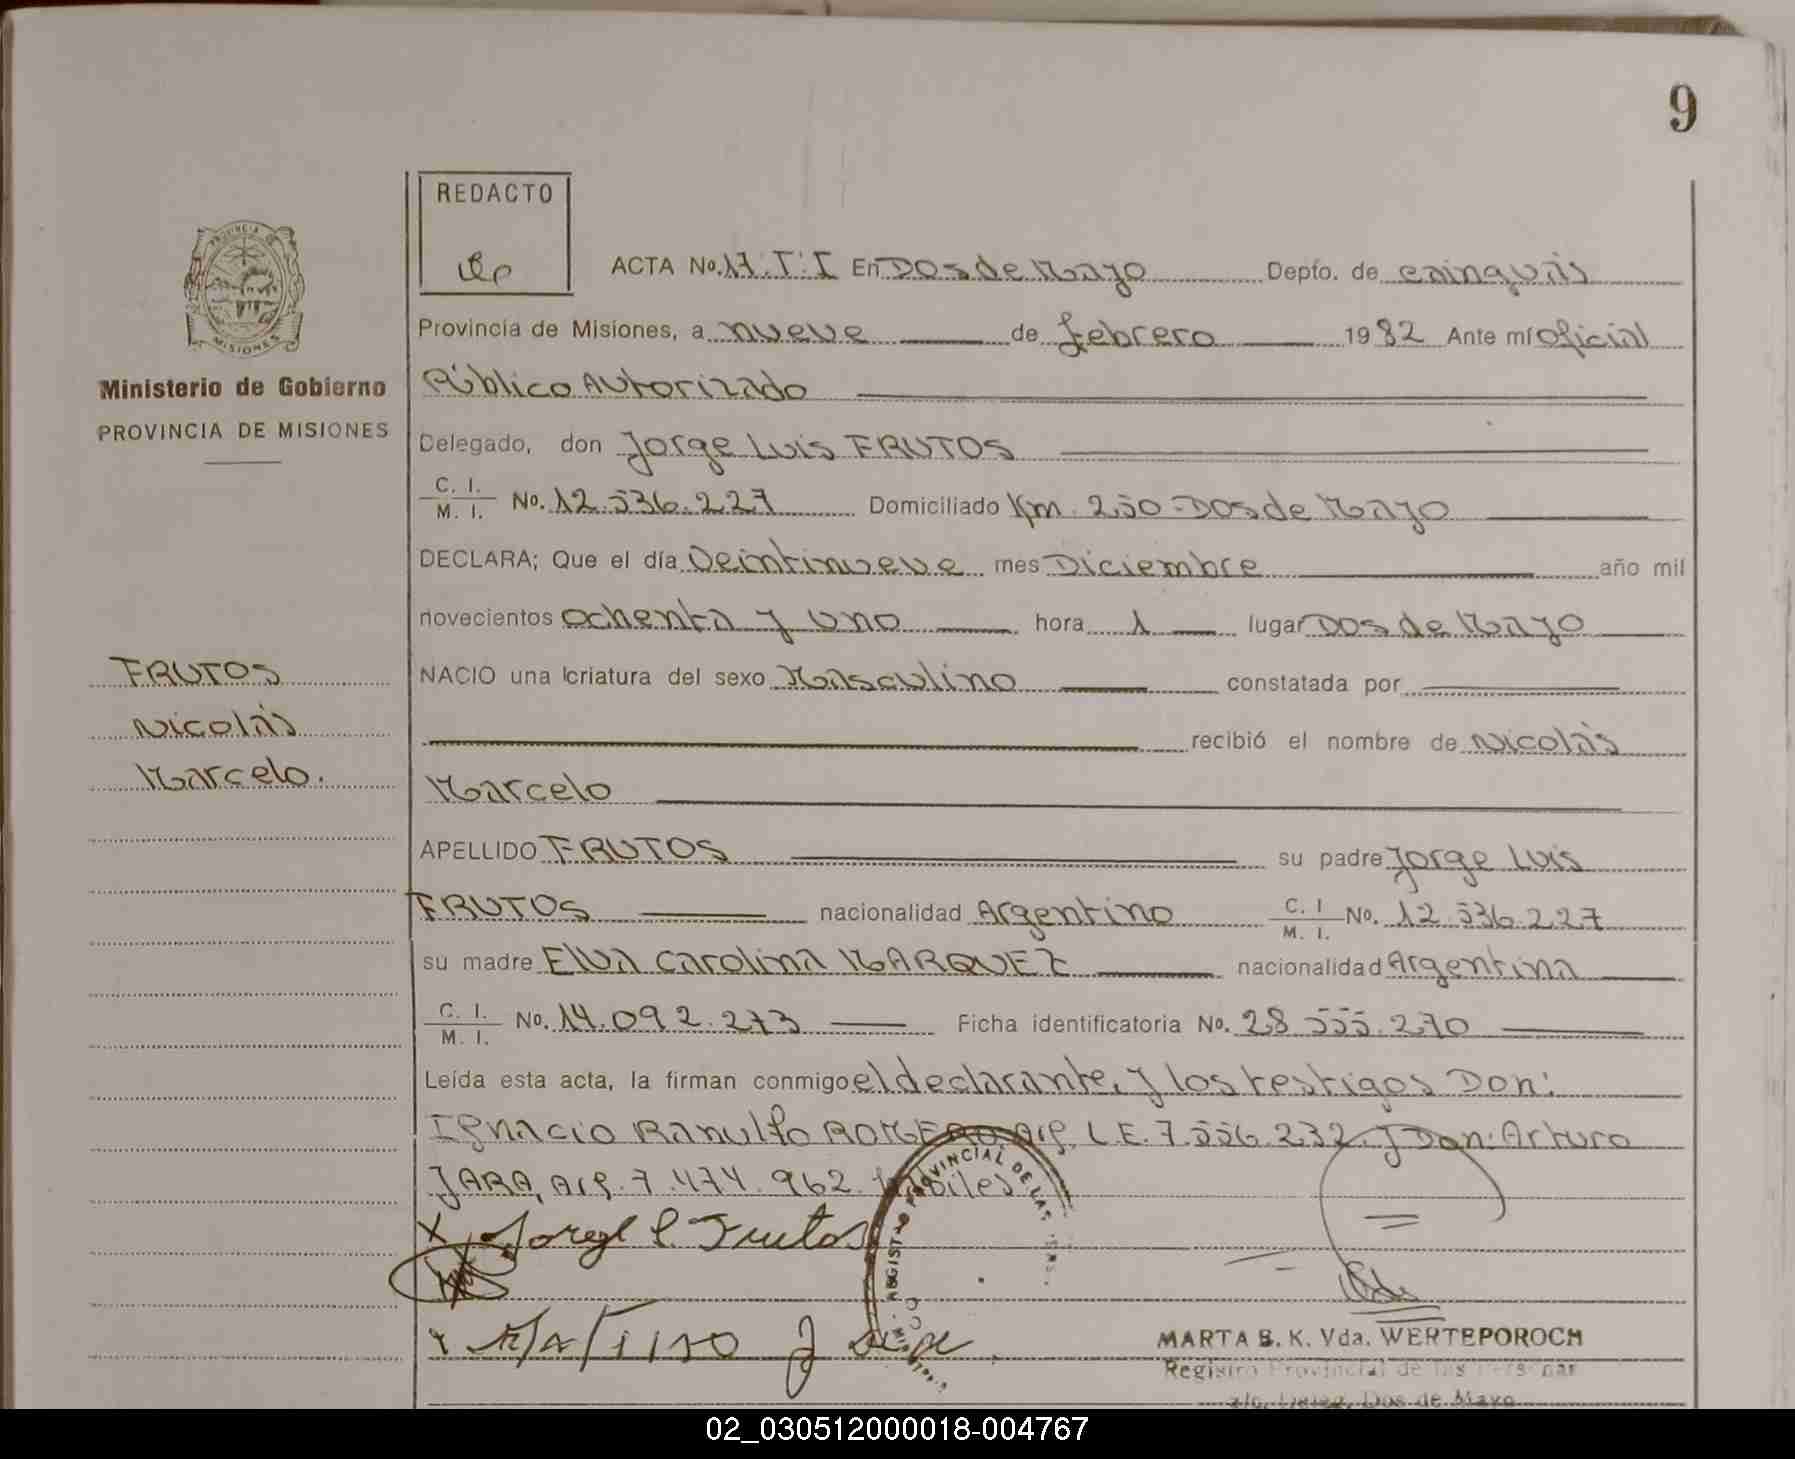 9
REDACTO
ACTA No. 17. T: I En Dos de Mayo Depto. de Cainguás
Provincia de Misiones, a nueve de febrero 1982 Ante mí Oficial
Público Autorizado
Delegado, don Jorge Luis FRUTOS
C. I. / M. I. No. 12.536.227 Domiciliado Km. 250-Dos de Mayo
DECLARA; Que el día Veintinueve mes Diciembre año mil
novecientos ochenta y uno hora 1 lugar Dos de Mayo
NACIO una criatura del sexo Masculino constatada por
recibió el nombre de Nicolás
Marcelo
APELLIDO FRUTOS su padre Jorge Luis
FRUTOS nacionalidad Argentino C. I / M. I. No. 12.536.227
su madre Elva Carolina MARQUEZ nacionalidad Argentina
C. I. / M. I. No. 14.092.273 Ficha identificatoria No. 28.555.270
Leída esta acta, la firman conmigo el declarante, y los testigos Don:
Ignacio Ranulfo ROMERO Arg. L.E. 7.556.232 y Don: Arturo
JARA, Arg. 7.474.962. hábiles
X Jorge L Frutos
REGISTRO PROVINCIAL DE LAS PERS.
MARTA B. K. Vda. WERTEPOROCH
Registro Provincial de las Personas
Deleg. Dos de Mayo
PROVINCIA DE
MISIONES
Ministerio de Gobierno
PROVINCIA DE MISIONES
FRUTOS
Nicolás
Marcelo.
02_030512000018-004767